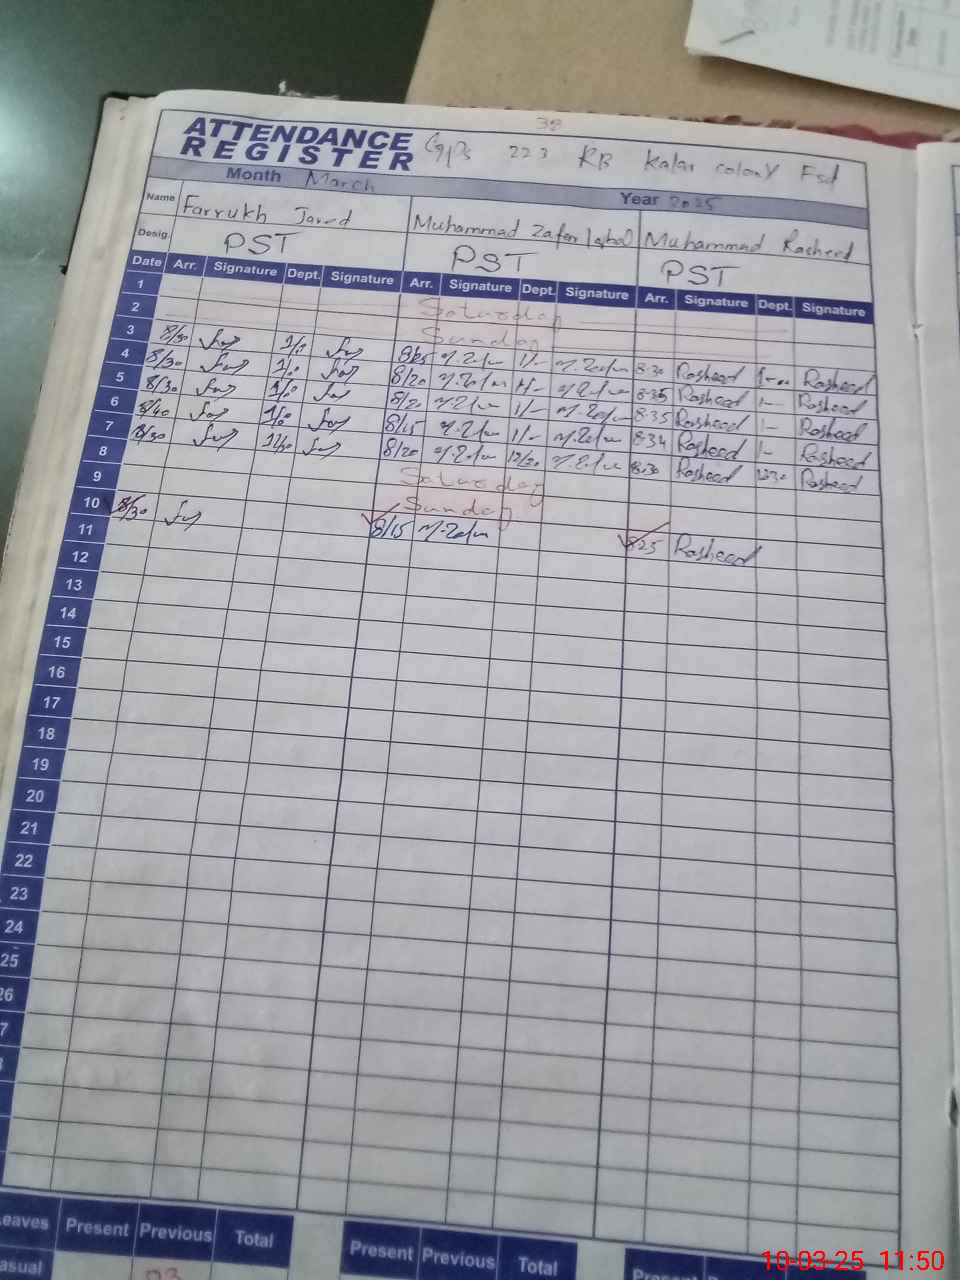 38
ATTENDANCE GPS 223 RB Kalar colony Fsd
REGISTER
Month March Year 2025
Name Farrukh Javed Muhammad Zafar Iqbal Muhammad Rasheed
Desig. PST PST PST
Date Arr. Signature Dept. Signature Arr. Signature Dept. Signature Arr. Signature Dept. Signature
1 Saturday
2 Sunday
3 8/30 1/0 1/- 8.30 Rasheed 1-00 Rasheed
4 8/30 1/0 8/20 1/- 8.35 Rasheed 1- Rasheed
5 8/30 1/0 8/20 1/- 8.35 Rasheed 1- Rasheed
6 8/40 1/0 8/15 1/- 8.34 Rasheed 1- Rasheed
7 8/30 8/20 12/30 8.30 Rasheed 12.30 Rasheed
8 Saturday
9 Sunday
10 8/30 8/15 8.25 Rasheed
11
12
13
14
15
16
17
18
19
20
21
22
23
24
25
26
7
eaves Present Previous Total Present Previous Total Present
asual 03
10-03-25 11:50